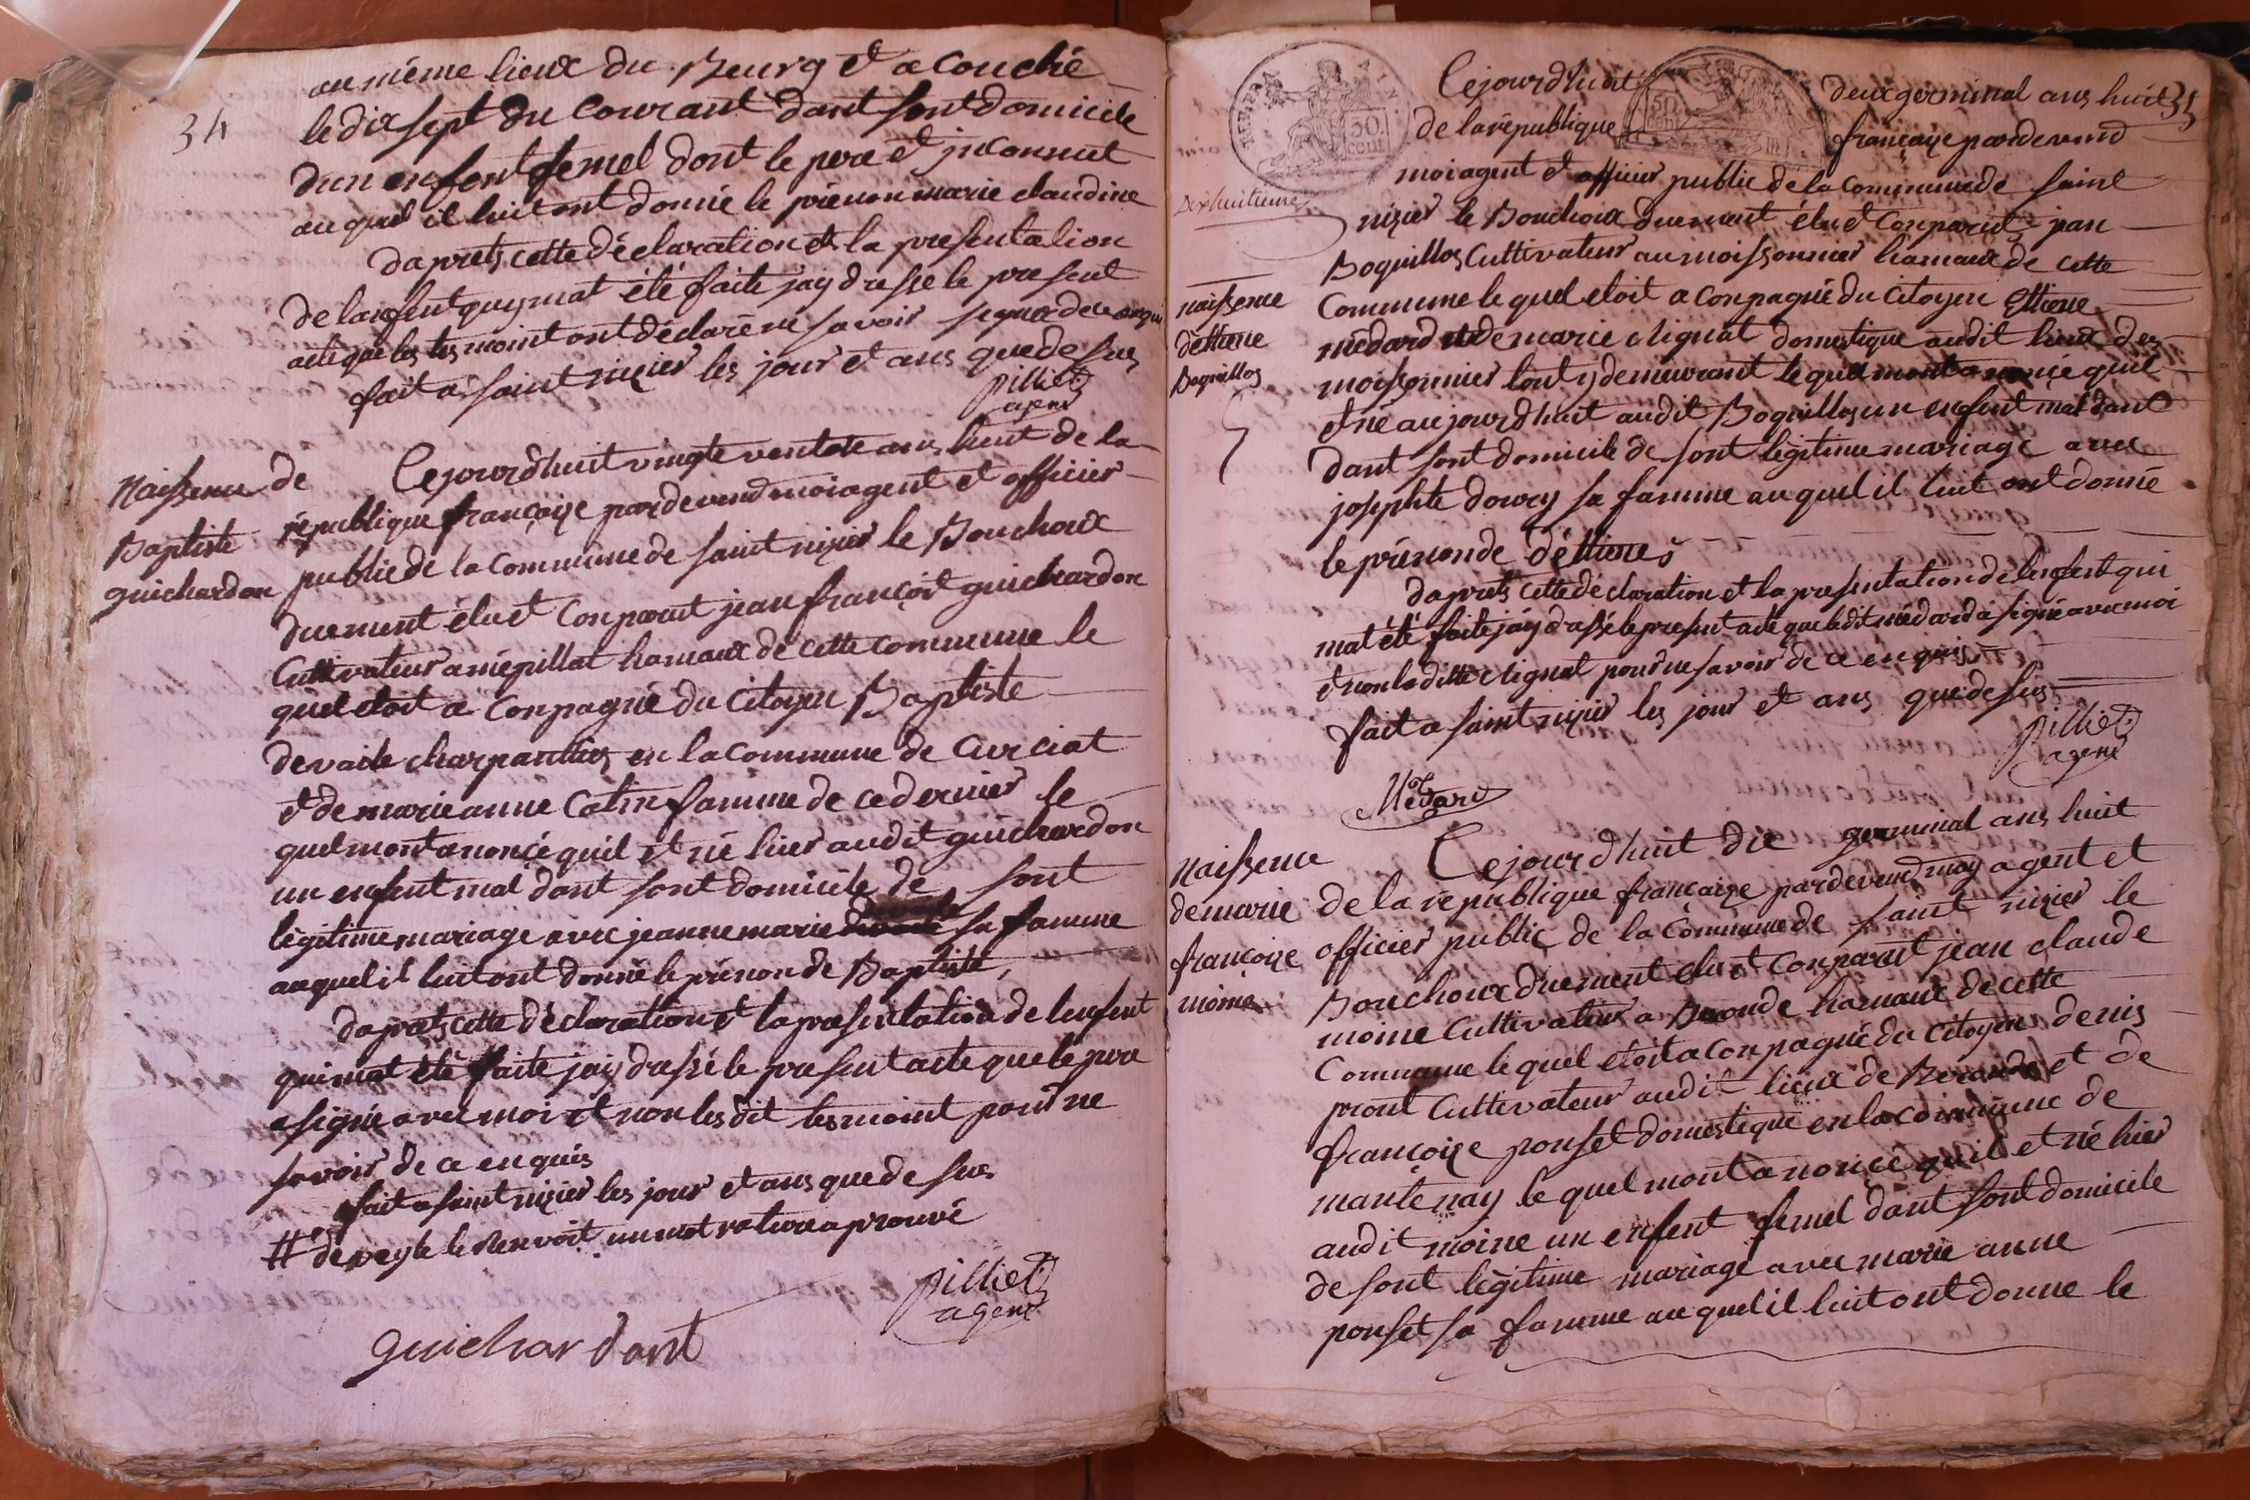 34
au même lieux du Beurg et a couché
le dix sept du courant dant sont domicile
dun enfent femel dont le pere et inconnut
au quel il luit ont donné le prénon marie claudine
daprets cette déclaration et la presentation
de lenfent quy mat été faite jay dressé le present
acte que les tesmoint ont déclaré ne savoir signer de ce enqui
fait a saint nizier les jour et ans que de sus
pilliet
agent
Naissence de
Baptiste
guichardon
Cejourdhuit vingte ventose ans huit de la
république françoize pardevend moi agent et officier
public de la commune de saint nizier le Bouchoux
duement élu et conparut jean françoit guichardon
Cultivateur a mépillat hamaux de cette commune le
quel etoit a conpagné du citoyen Baptiste
devaite charpantier en la commune de Curciat
et de marie anne Catin famme de ce dernier le
quel mont anoncé quil et né hier audit guichardon
un enfent mal dant sont domicile de sont
légitime mariage avec jeanne marie sa famme
auquel il luit ont donné le prénon de Baptiste
daprets cette déclaration et la presentation de lenfent
qui mat été faite jay dressé le present acte que le pere
a signé avec moi et non les dit tesmoint pour ne
savoir de ce enquis
fait a saint nizier les jour et ans que de sus
# deveyle le Renvoit un mot rature aprouvé
pilliet
agent
guichardant
35
30
cent
Dixhuitieme
Cejourdhuit deux germinal ans huit
de la république françaize pardevend
moi agent et officier public de la commune de saint
nizier le Bouchoux duement élu et conparut jean
Boquillos Cultivateur au moissonnier hamaux de cette
Commune le quel etoit a conpagné du citoyen Ettiene
médard et de marie clignat domestique audit lieux des
moissonnier tout y demeurant le quel mont anoncé quil
et né aujourdhuit audit Boquillos un enfent mal dant
dant sont domicile de sont légitime mariage avec
josephte dowry sa famme auquel il luit ont donné
le prénon de déttiene
Naissence
dettiene
Boquillos
daprets cette déclaration et la presentation de lenfent qui
mat été faite jay dressé le present acte que ledit médard a signé avec moi
et non la ditte clignat pour ne savoir de ce enquis
fait a saint nizier les jour et ans que de sus
pilliet
agent
Médard
Naissence
de marie
françoize
moine
Cejourdhuit dix germinal ans huit
de la république françaize pardevend moy agent et
officier public de la commune de saint nizier le
Bouchoux duement élu et conparut jean claude
moine Cultivateur a Buronde hamaux de cette
Commune le quel etoit a conpagné du citoyen denis
pront Cultivateur audit lieux de Beronde et de
françoize ponset domestique en la commune de
mantenay le quel mont anoncé quil et né hier
audit moine un enfent femel dant sont domicile
de sont légitime mariage avec marie anne
ponset sa famme au quel il luit ont donne le